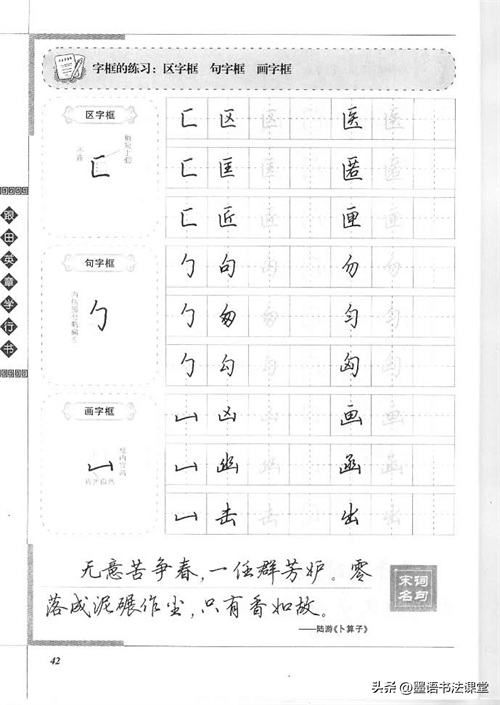 字框的练习：区字框 句字框 画字框
区字框
匚 区 区 医 医
匚 匡 匡 匿 匿
匚 匠 匠 匣 匣
句字框
勹 句 句 勿 勿
勹 匆 匆 匀 匀
勹 勾 勾 匈 匈
画字框
凵 凶 凶 画 画
凵 幽 幽 函 函
凵 击 击 出 出
跟田英章学行书
无意苦争春，一任群芳妒。零
落成泥碾作尘，只有香如故。
——陆游《卜算子》
宋词
名句
42
头条@墨语书法课堂